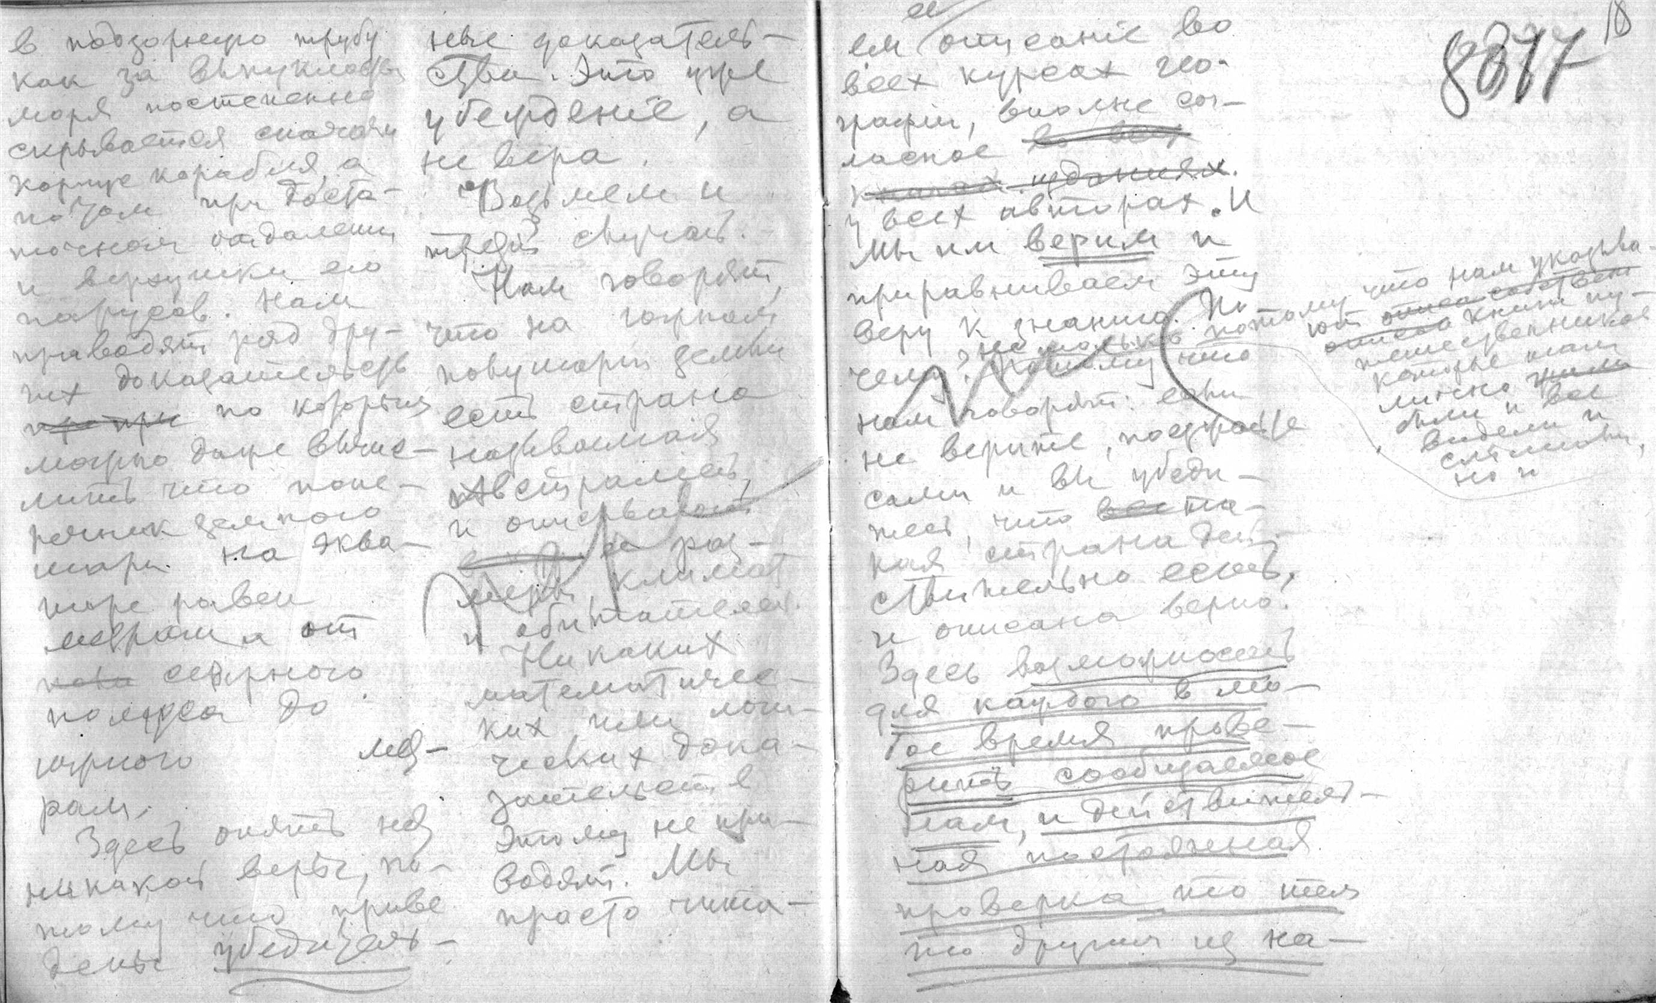 в подзорную трубу
как за выпуклость
моря постепенно
скрывается сначала
корпус корабля, а
потом при доста-
точном отдалении
и верхушки его
парусов. Нам
приводят ряд дру-
гих доказательств
по которым
можно даже вычис-
лить что попе-
речник земного
шара на эква-
торе равен
метрам а от
северного
полюса до
южного мет-
рам.
Здесь опять нет
никакой веры, по-
тому что приве
дены убедитель-
ные доказатель-
ства. Это уже
убеждение, а
не вера.
Возьмем и
третiй случай.
Нам говорят,
что на южном
полушарiи земли
есть страна
называемая
Австралiей,
и описывают
ее раз-
меры, климат
и обитателей.
Никаких
математичес-
ких или логи-
ческих дока-
зательств
этому не при-
водят. Мы
просто чита-
ем ее описанiе во
всех курсах гео-
графiи, вполне сог-
ласное во всех
книгах изданиях.
у всех авторах. И
мы им верим и
приравниваем эту
веру к знанию. По
чему? Не только потому что нам указыва-
ют
книги пу-
тешественников
которые там
лично жили
были и все
видели и
слышали,
но и
потому что
нам говорят: если
не верите, поезжайте
сами и вы убеди-
тесь, что та-
кая страна дей-
ствительно есть,
и описана верно.
Здесь возможность
для каждого в лю-
бое время прове-
рить сообщаемое
нам, и действитель-
ная постоянная
проверка то тем
то другим из на-
18
8377